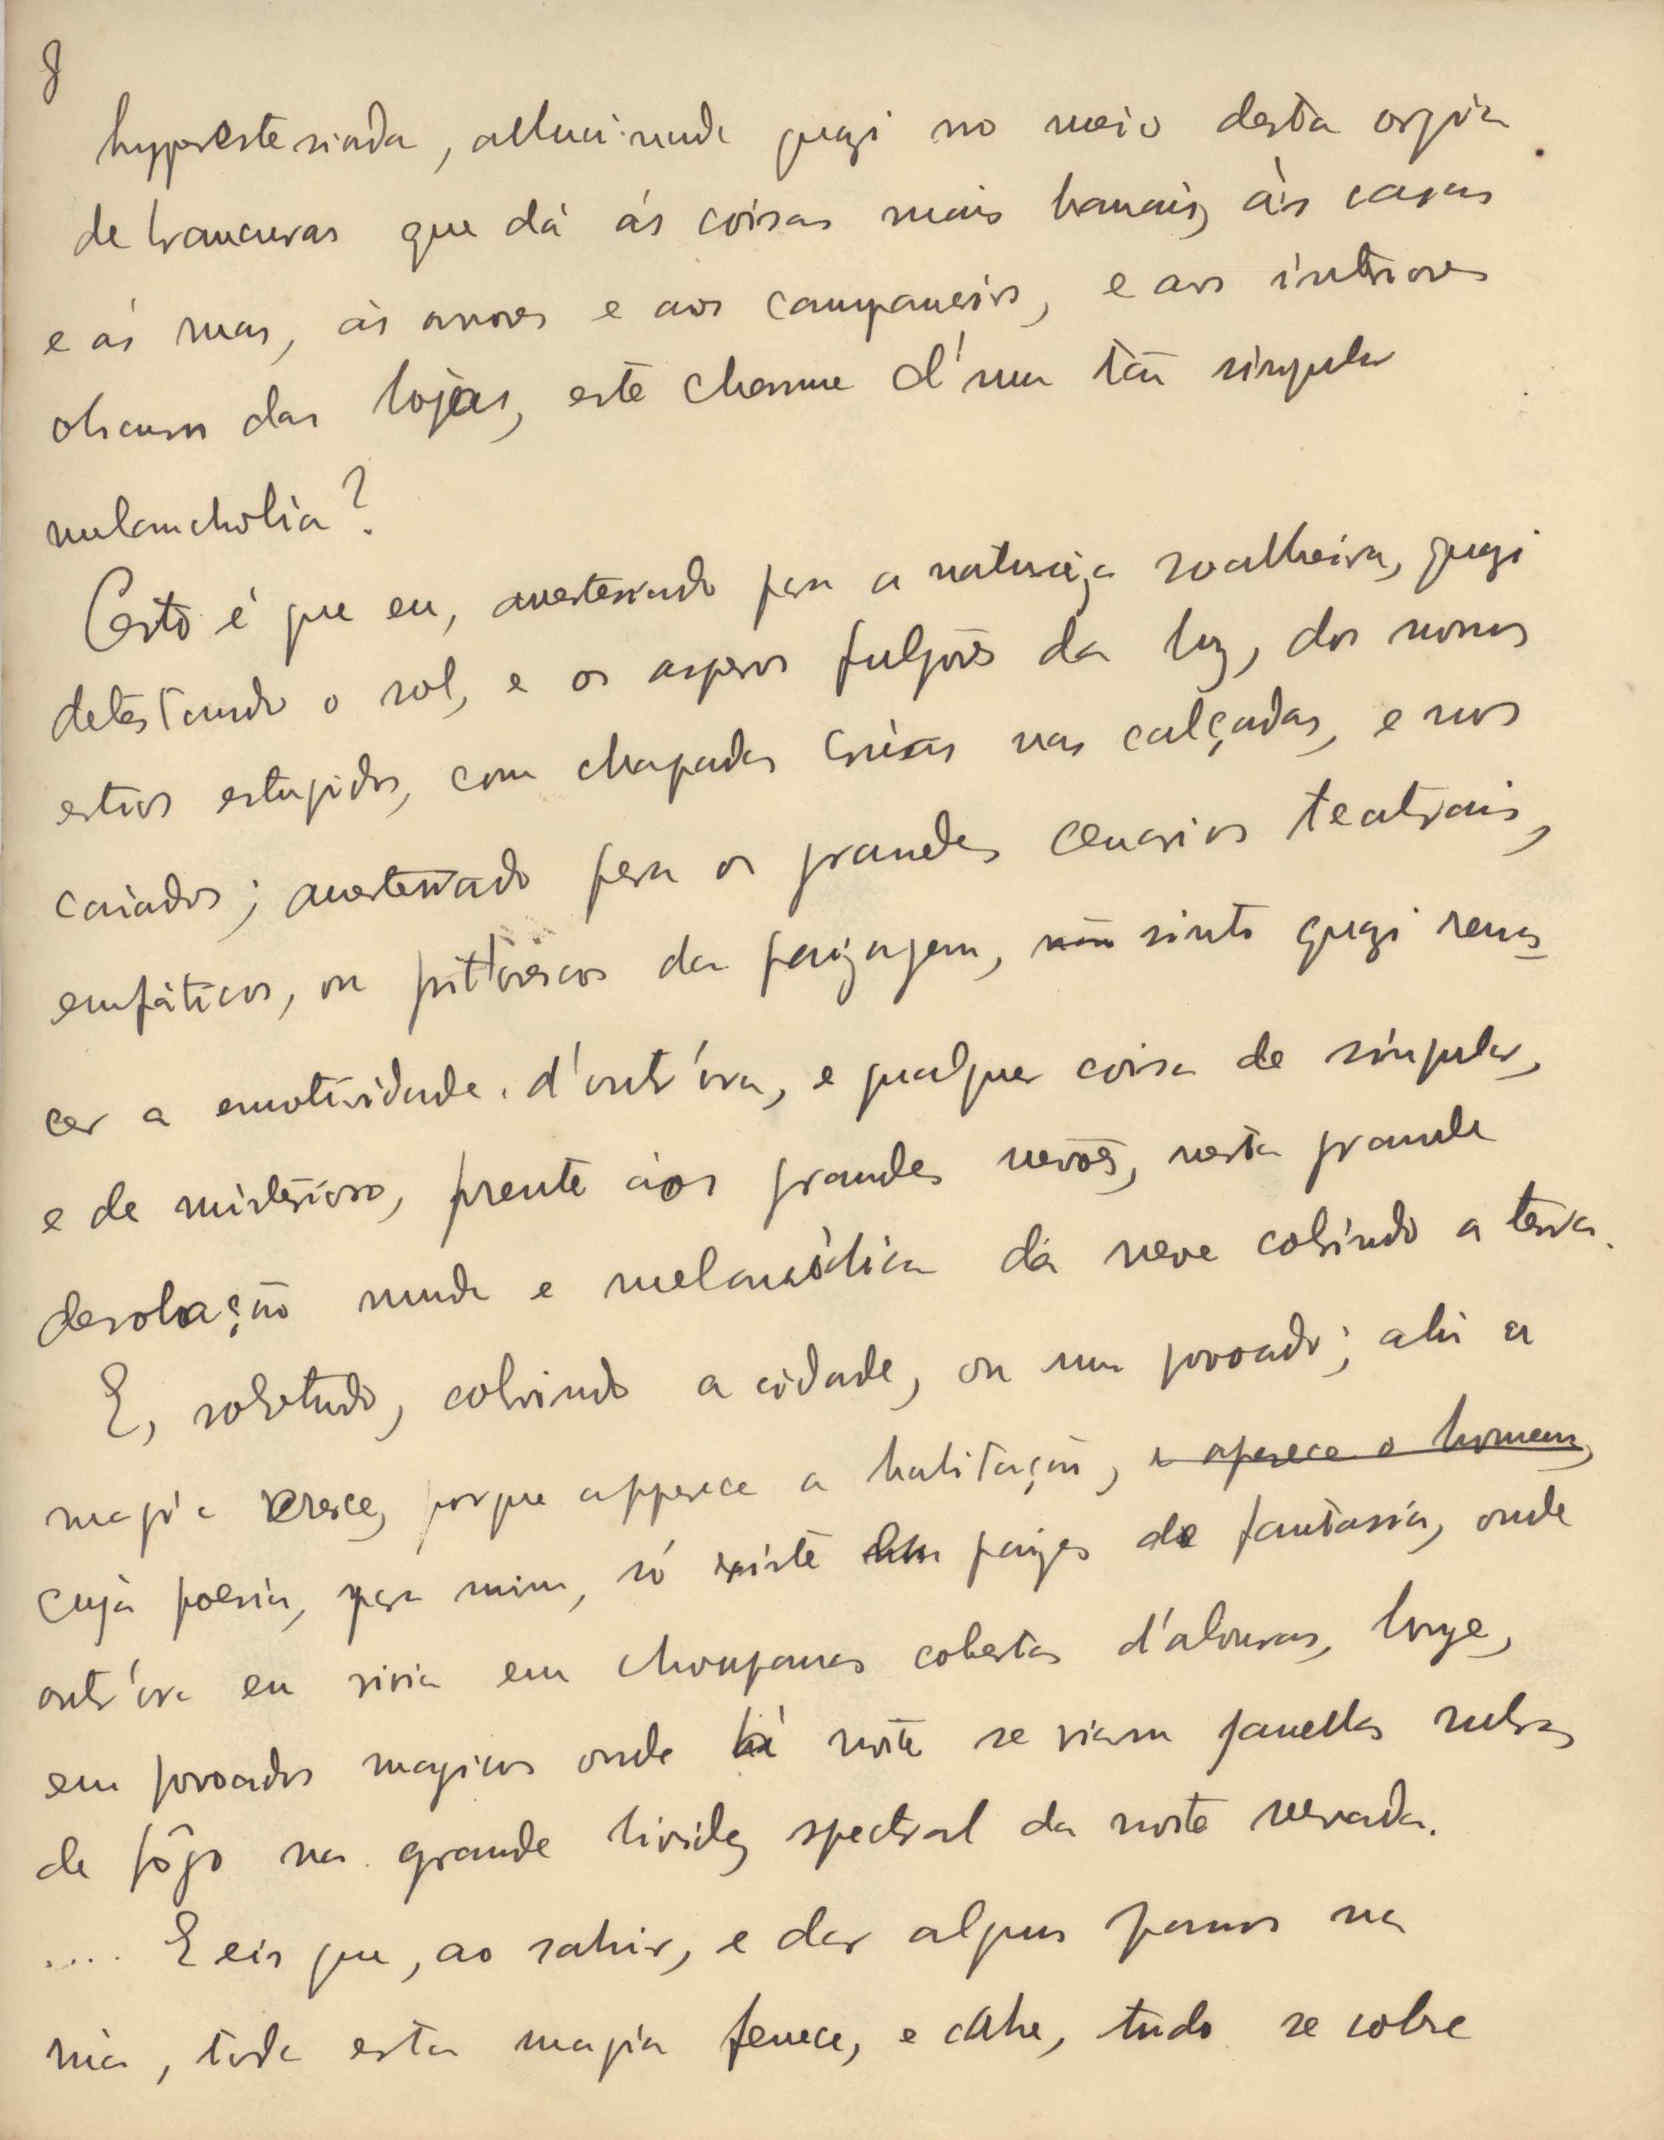 8
hyperestesiada, allucinada quazi no meio desta orgia
de brancuras que dá ás coisas mais banais, ás casas
e ás ruas, ás arvores e aos campanarios, e aos interiores
obscuros das lojas, este charme d'uma tão singular
melancholia?
Certo é que eu, anestesiado pera a natureza soalheira, quazi
detestando o sol, e os asperos fulgôres da luz, dos nossos
estios estupidos, com chapadas cruas nas calçadas, e nos
caiados; anestesiado pera os grandes cenarios teatrais,
emfáticos, ou pittorescos da paizagem, sinto quazi renas-
cer a emotividade d'outr'ora, e qualquer coisa de singular,
e de misterioso, frente aos grandes nevões, nesta grande
desolação muda e melancólica da neve cobrindo a terra.
E, sobretudo, cobrindo a cidade, ou um povoado; ahi a
magia cresce, porque apparece a habitação, e aparece o homem,
cuja poesia, pera mim, só existe em paizes de fantasia, onde
outr'ora eu vivia em choupanas cobertas d'alvuras, longe,
em povoados magicos onde á noite se viam janellas rubras
de fôgo na grande lividez spectral da noite nevada.
.... E eis que, ao sahir, e dar alguns passos na
rua, toda esta magia fenece, e cahe, tudo se cobre